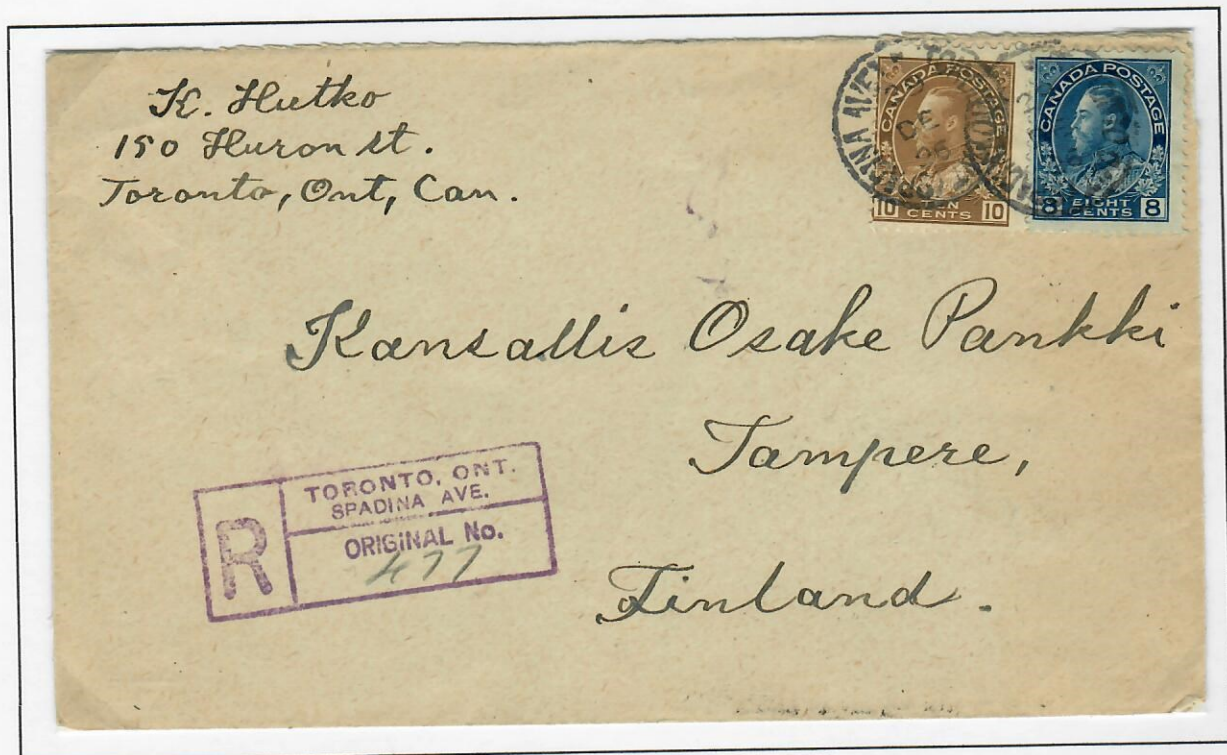 K. Hutko
150 Huron St.
Toronto, Ont, Can.
CANADA POSTAGE
10 TEN CENTS 10
CANADA POSTAGE
8 EIGHT CENTS 8
SPADINA AVE
DE
26
Kansallis Osake Pankki
Tampere,
Finland.
R
TORONTO, ONT.
SPADINA AVE.
ORIGINAL No.
477